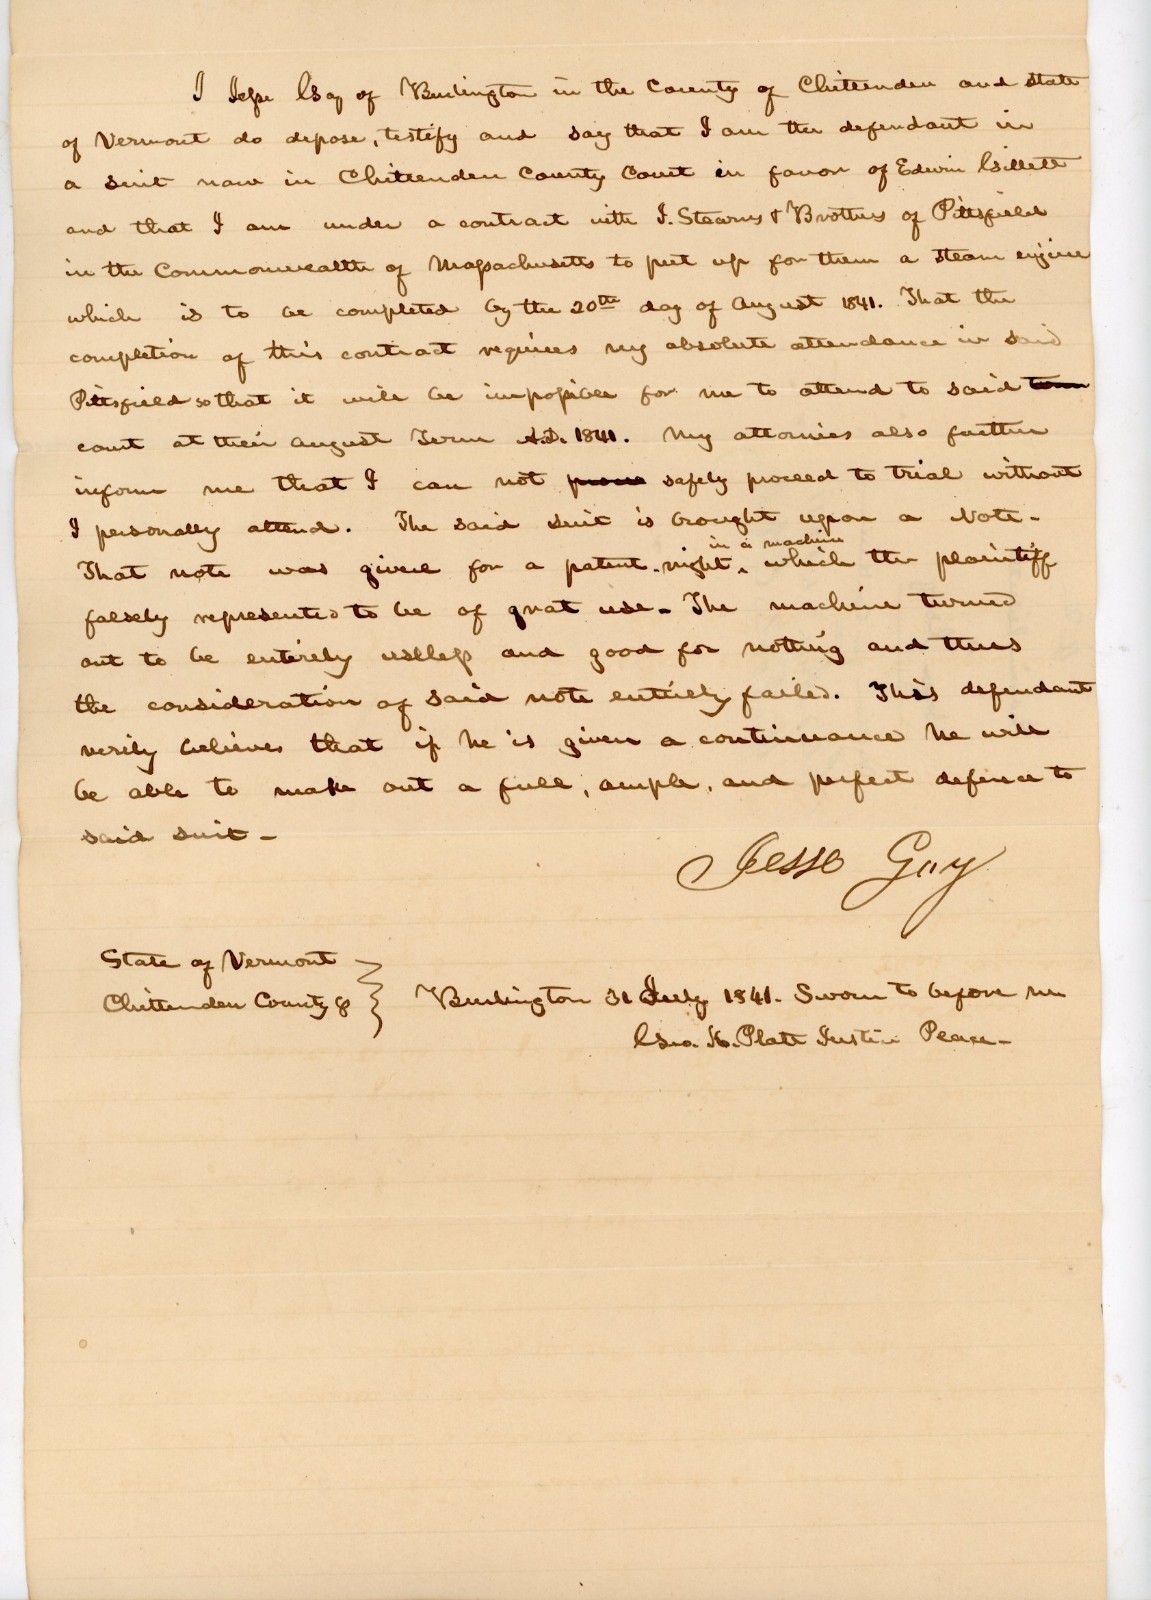 I Jesse Gay of Burlington in the County of Chittenden and State
of Vermont do depose, testify and say that I am the defendant in
a suit now in Chittenden County Court in favor of Edwin Gillett
and that I am under a contract with J. Stearns & Brothers of Pittsfield
in the Commonwealth of Massachusetts to put up for them a steam engine
which is to be completed by the 20th day of August 1841. That the
completion of this contract requires my absolute attendance in said
Pittsfield so that it will be impossible for me to attend to said term
court at their August Term A.D. 1841. My attornies also further
inform me that I can not safely proceed to trial without
I personally attend. The said suit is brought upon a Note -
in a machine
That note was given for a patent right ^ which the plaintiff
falsely represented to be of great use - The machine turned
out to be entirely useless and good for nothing and thus
the consideration of said note entirely failed. This defendant
verily believes that if he is given a continuance he will
be able to make out a full, ample, and perfect defence to
said suit -
Jesse Gay
State of Vermont
Chittenden County ss } Burlington 31 July 1841. Sworn to before me
Geo. K. Platt Justice Peace -